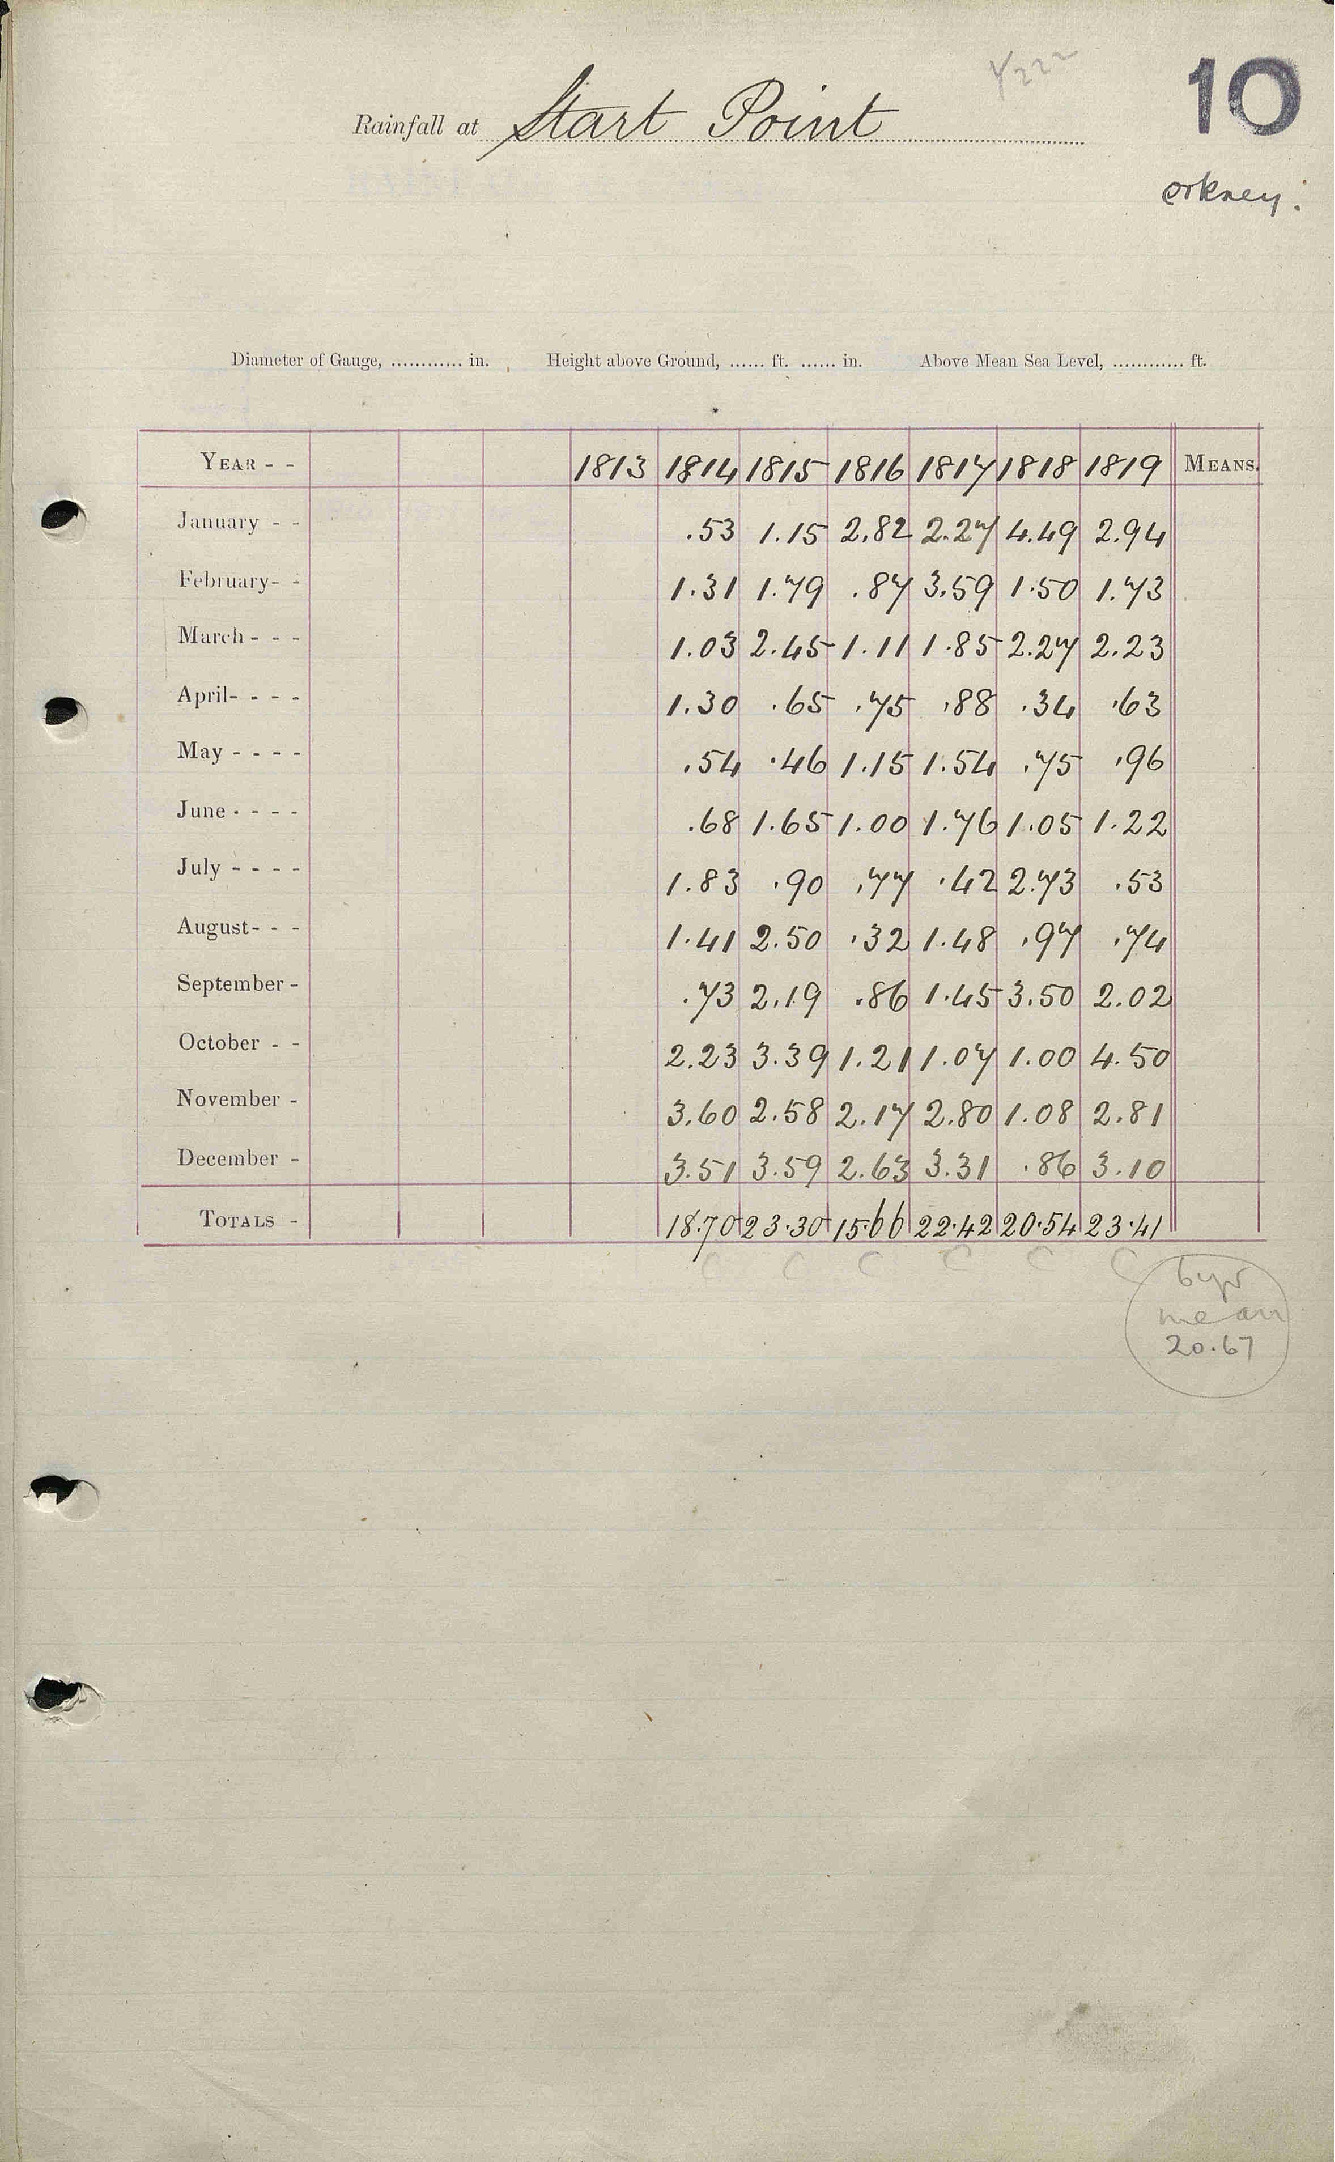 10
Rainfall at Start Point
Orkney.
Diameter of Gauge, ............ in. Height above Ground, ...... ft. ...... in. Above Mean Sea Level, ............ ft.
YEAR - - 1813 1814 1815 1816 1817 1818 1819 MEANS.
January - - .53 1.15 2.82 2.27 4.49 2.94
February- - 1.31 1.79 .87 3.59 1.50 1.73
March - - - 1.03 2.45 1.11 1.85 2.27 2.23
April- - - - 1.30 .65 .75 .88 .34 .63
May - - - - .54 .46 1.15 1.54 .75 .96
June - - - - .68 1.65 1.00 1.76 1.05 1.22
July - - - - 1.83 .90 .77 .42 2.73 .53
August- - - 1.41 2.50 .32 1.48 .97 .74
September - .73 2.19 .86 1.45 3.50 2.02
October - - 2.23 3.39 1.21 1.07 1.00 4.50
November - 3.60 2.58 2.17 2.80 1.08 2.81
December - 3.51 3.59 2.63 3.31 .86 3.10
TOTALS - 18.70 23.30 15.66 22.42 20.54 23.41
C C C C C C
6 yr
mean
20.67